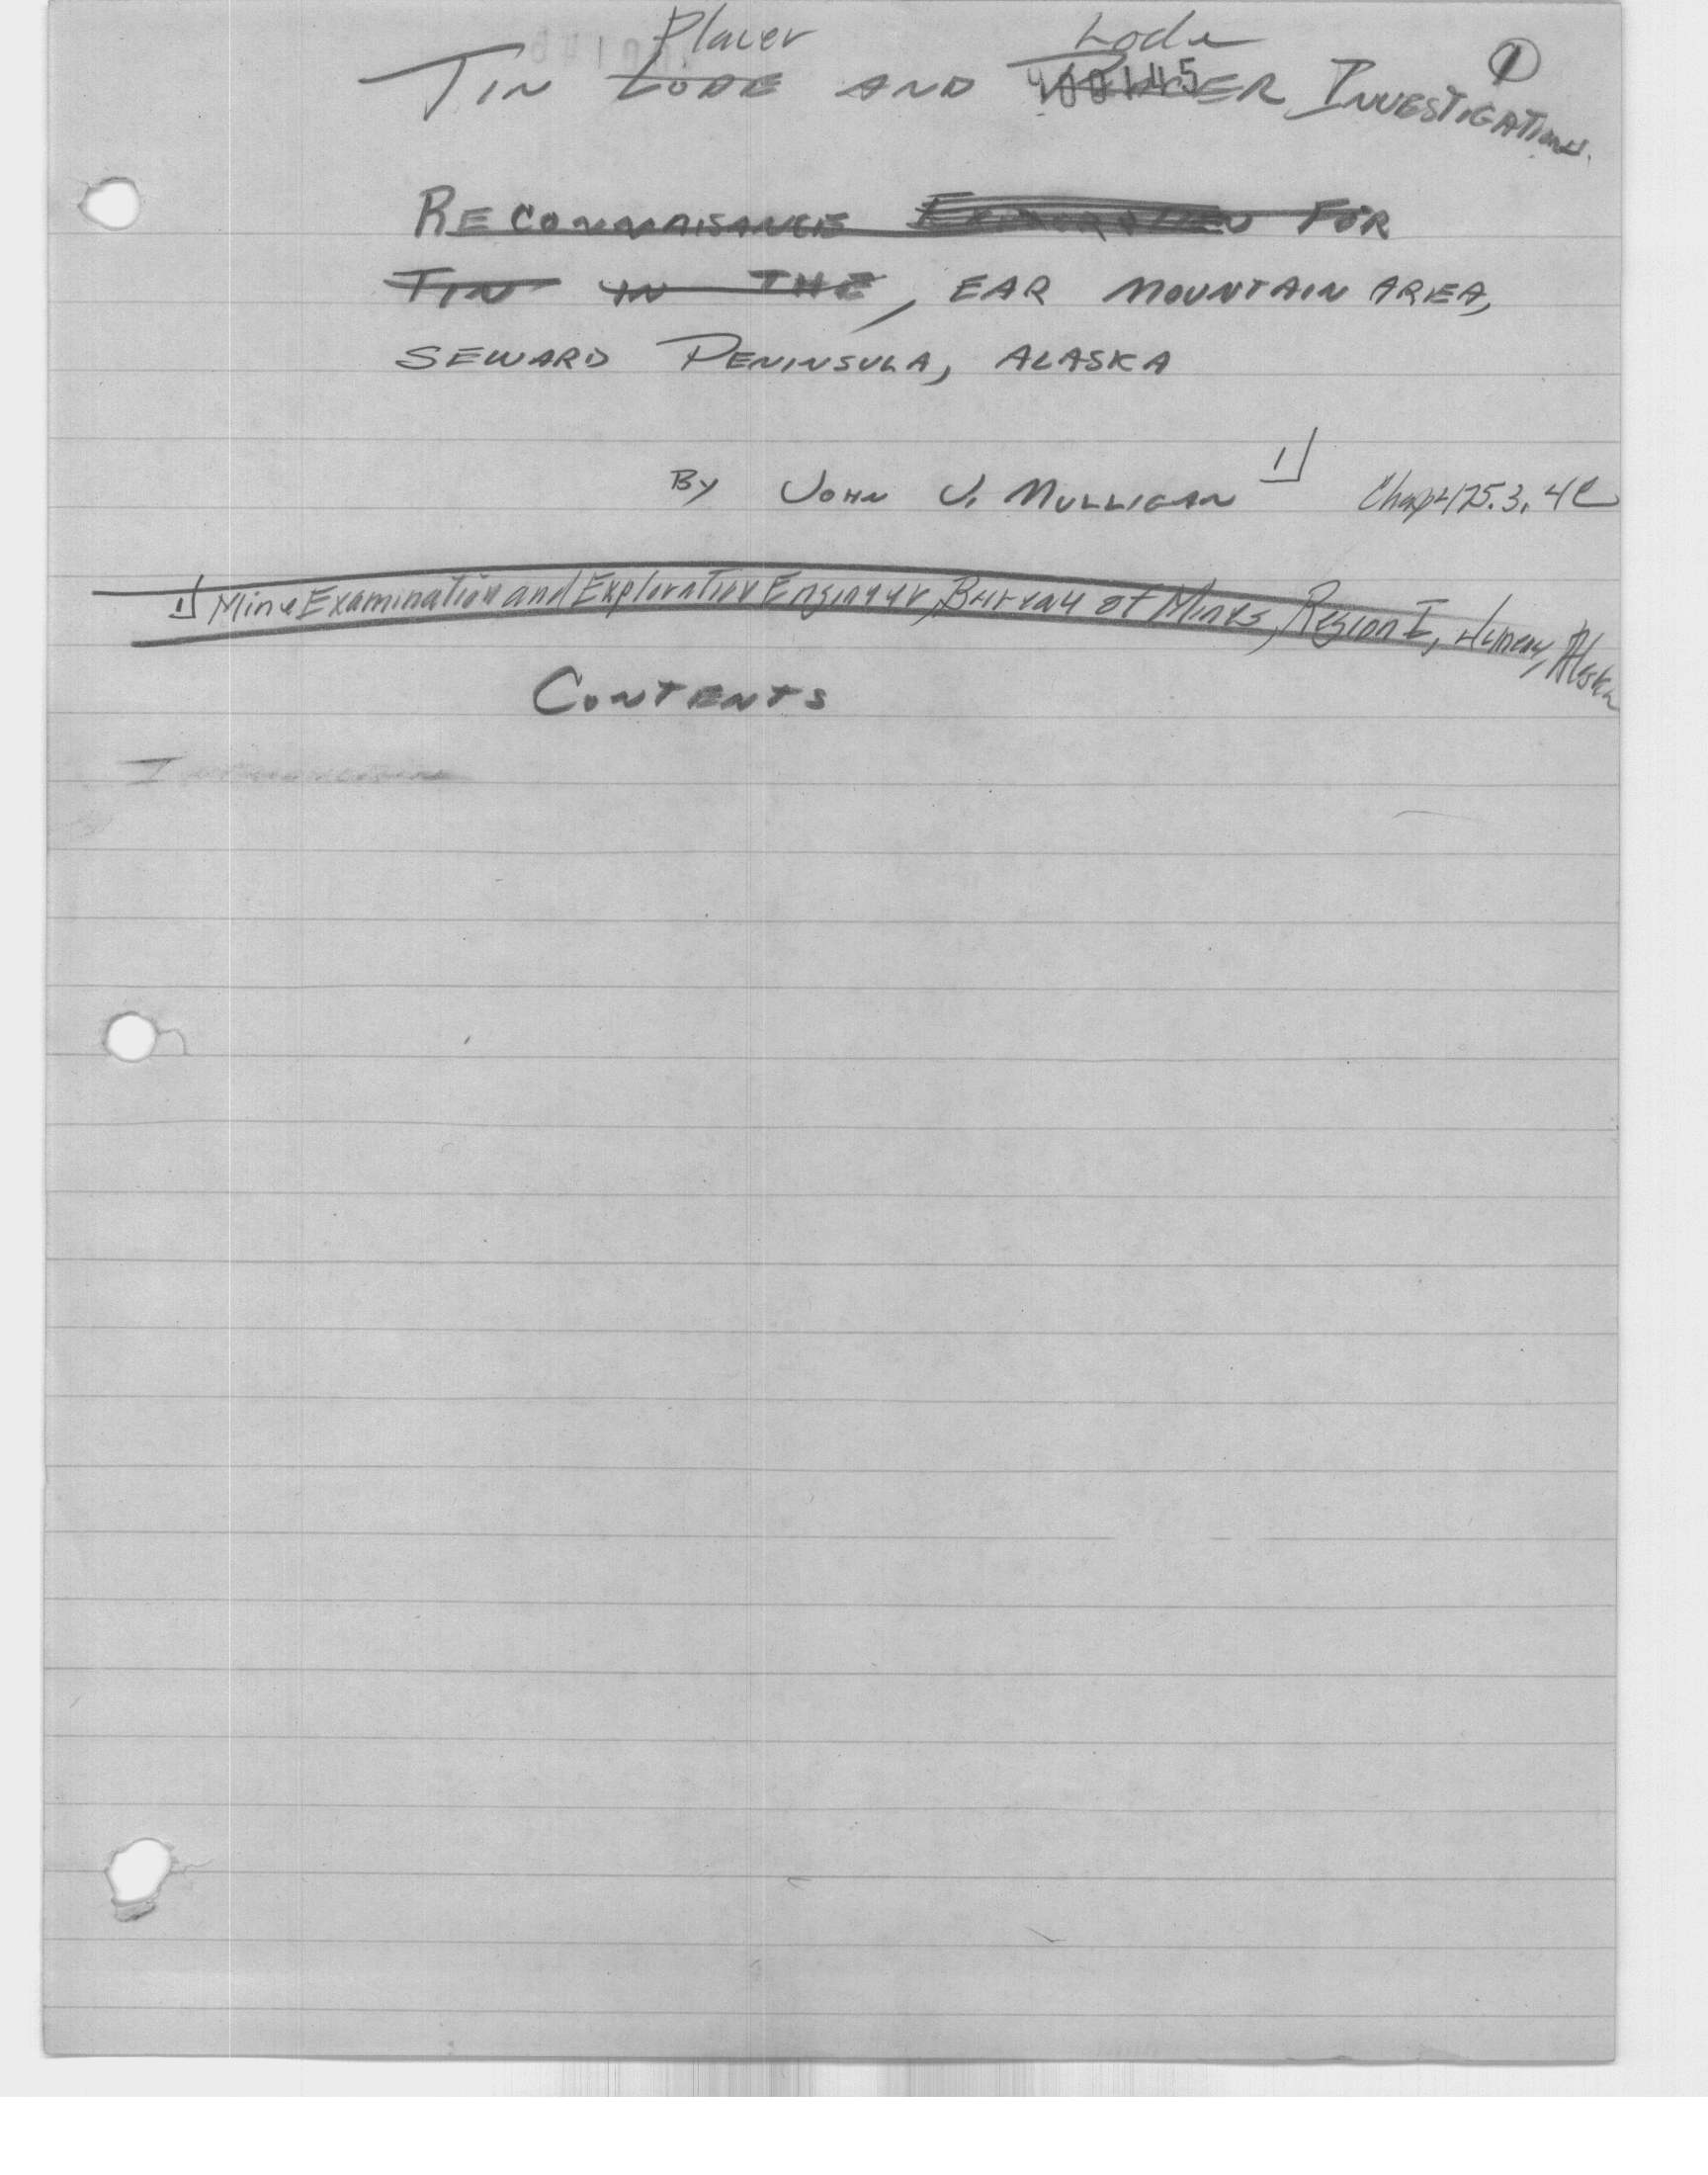 Placer Lode
TIN LODE AND PLACER INVESTIGATIONS. 1
400145
RECONNAISANCE FOR
TIN IN THE, EAR MOUNTAIN AREA,
SEWARD PENINSULA, ALASKA
BY JOHN J. MULLIGAN 1/
1/ Mine Examination and Exploration Engineer, Bureau of Mines, Region I, Juneau, Alaska
CONTENTS